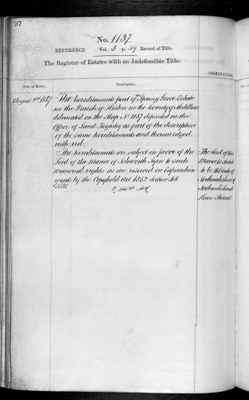 No. 1137
REFERENCE Vol. 3 p. 49 Record of Title.
The Register of Estates with an Indefeasible Title.
Date of Entry.
Description.
OBSERVATIONS.
August 1867 The hereditaments part of Spring Grove Estate
in the Parish of Heston in the County of Middlesex
delineated on the Map No. 1137 deposited in the
Office of Land Registry as part of the description
of the same hereditaments and thereon edged
with red.
The hereditaments are subject in favor of the
Lord of the Manor of Isleworth Syon to such
manorial rights as are reserved on Enfranchise
ments by the Copyhold Act 1852 Section 48
The Lord of the
Manor is stated
to be the Duke of
Northumberland of
Northumberland
House Strand